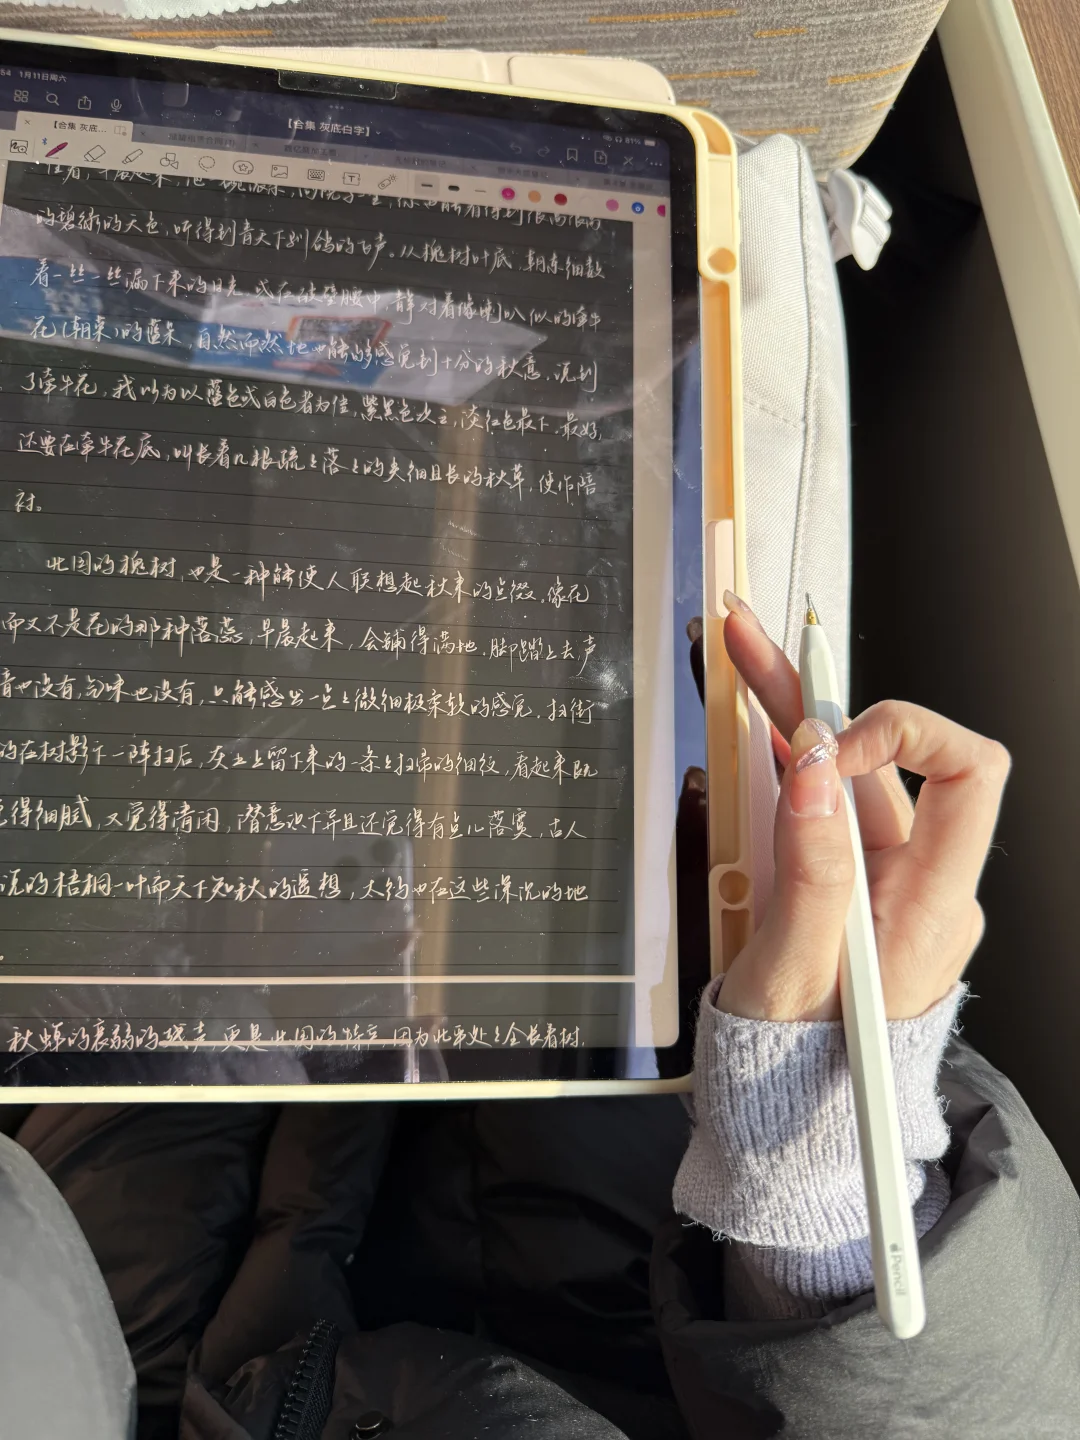 54 1月11日周六
81%
【合集 灰底白字】
【合集 灰底...
的碧绿的天色,听得到青天下驯鸽的飞声。从槐树叶底,朝东细数
着一丝一丝漏下来的日光,或在破壁腰中,静对着像喇叭似的牵牛
花(朝荣)的蓝朵,自然而然地也能够感觉到十分的秋意。说到
了牵牛花,我以为以蓝色或白色者为佳,紫黑色次之,淡红色最下。最好,
还要在牵牛花底,叫长着几根疏疏落落的尖细且长的秋草,使作陪
衬。
北国的槐树,也是一种能使人联想起秋来的点缀。像花
而又不是花的那种落蕊,早晨起来,会铺得满地。脚踏上去,声
音也没有,气味也没有,只能感出一点点微细极柔软的感觉。扫街
的在树影下一阵扫后,灰土上留下来的一条条扫帚的细纹,看起来既
觉得细腻,又觉得清闲,潜意识下并且还觉得有点儿落寞,古人
说的梧桐一叶而天下知秋的遥想,大约也在这些深沉的地
秋蝉的衰弱的残声,更是北国的特产,因为北平处处全长着树,
Pencil